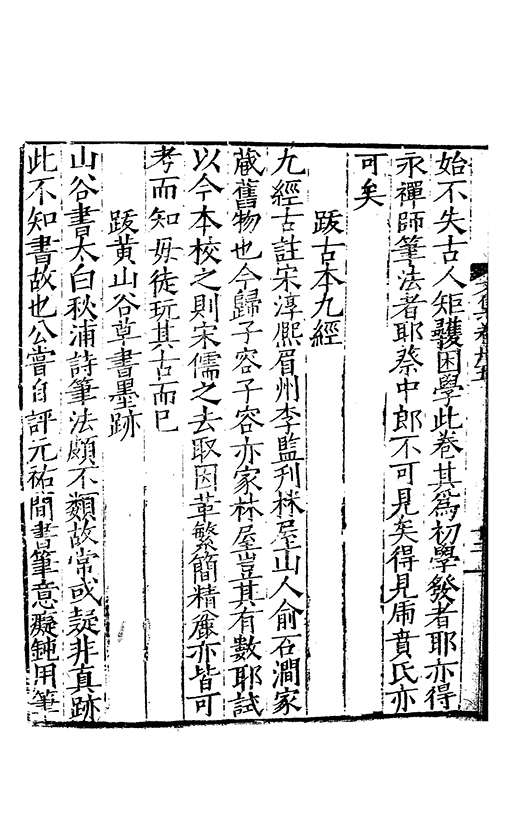 始不失古人矩矱困學此卷其爲初學發者耶亦得
永禪師筆法者耶蔡中郎不可見矣得見虎賁氏亦
可矣
跋古本九經
九經古註宋淳熙眉州李監刋林屋山人俞石澗家
藏舊物也今歸子容子容亦家林屋豈其有數耶試
以今本校之則宋儒之去取因革繁簡精麄亦皆可
考而知毋徒玩其古而已
跋黃山谷草書墨跡
山谷書太白秋浦詩筆法頗不類故常或疑非真跡
此不知書故也公嘗自評元祐間書筆意癡鈍用筆